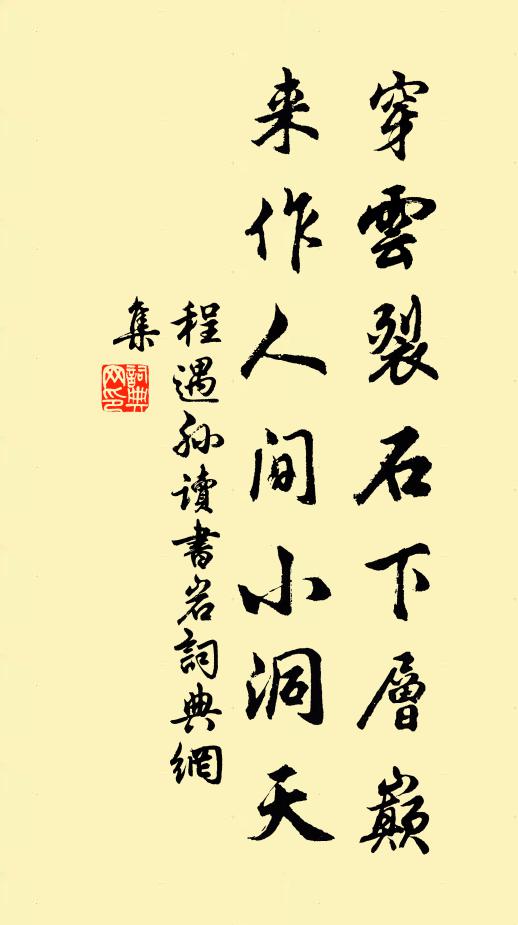 穿雲裂石下層巔
来作人间小洞天
程遇孙讀書岩詞典網
集
詞典
网印